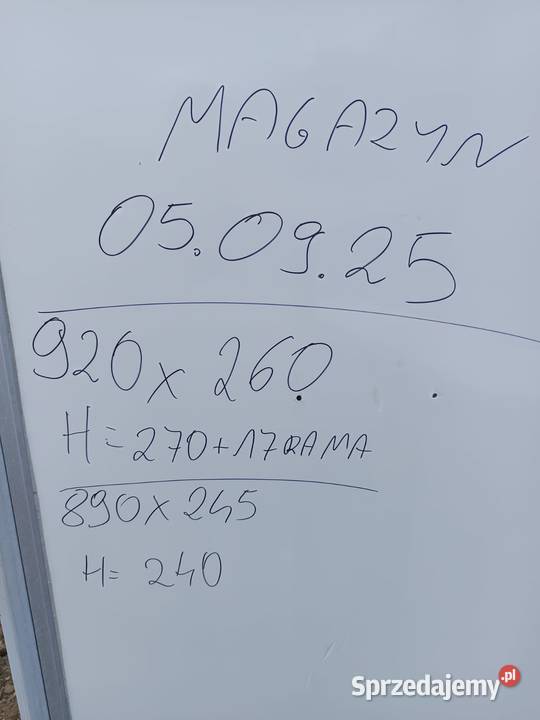 MAGAZYN
05.09.25
920 x 260
H = 270 + 17 RAMA
890 x 245
H = 240
Sprzedajemy.pl